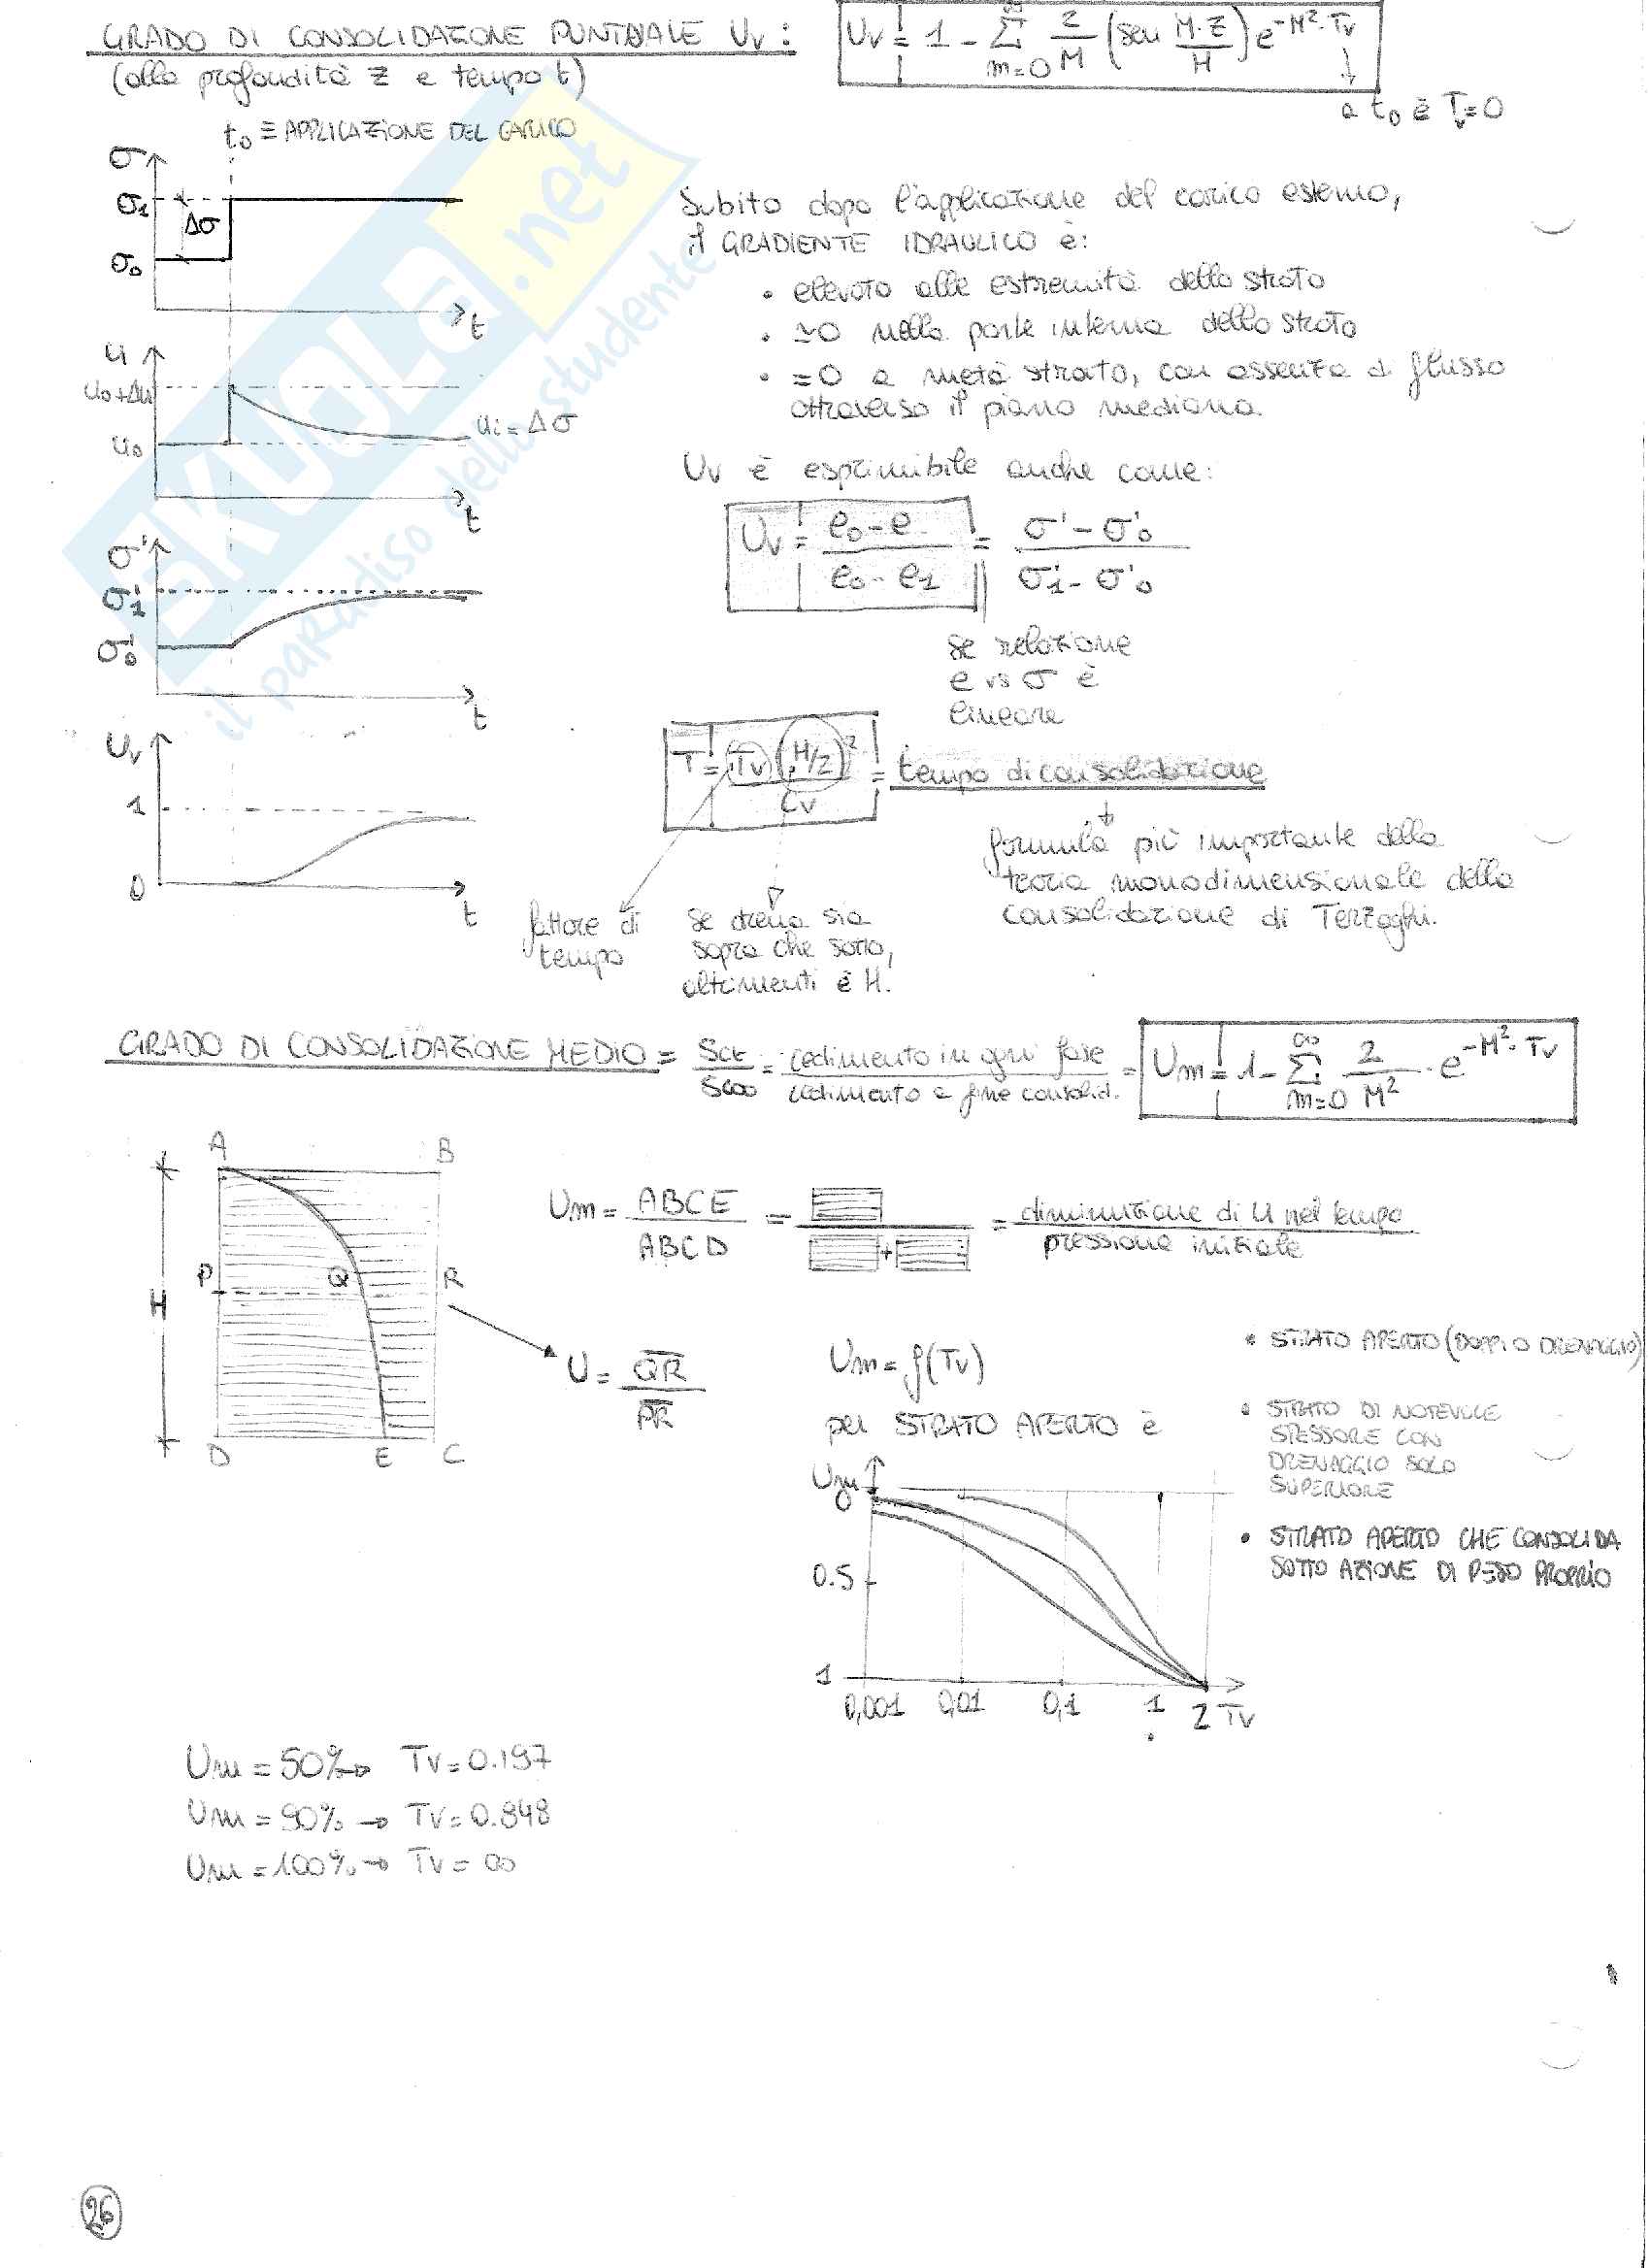 GRADO DI CONSOLIDAZIONE PUNTUALE Uv :
Uv = 1 - Σ 2/M (sen M·Z/H) e^-M²·Tv
∞
m=0
(alla profondità z e tempo t)
a t₀ è Tv=0
t₀ ≡ APPLICAZIONE DEL CARICO
σ
σ₁
Δσ
σ₀
t
Subito dopo l'applicazione del carico esterno,
il GRADIENTE IDRAULICO è:
• elevato alle estremità dello strato
• ≃0 nella parte interna dello strato
• =0 a metà strato, con assenza di flusso
attraverso il piano mediano.
u
u₀+Δu
u₀
ui = Δσ
t
Uv è esprimibile anche come:
Uv = e₀-e / e₀-e₁ = σ'-σ'₀ / σ'₁-σ'₀
se relazione
e vs σ è
lineare
σ'
σ'₁
σ'₀
t
Uv
1
0
t
T = Tv (H/2)² / Cv = tempo di consolidazione
formula più importante della
teoria monodimensionale della
consolidazione di Terzaghi.
fattore di
tempo
se drena sia
sopra che sotto,
altrimenti è H.
GRADO DI CONSOLIDAZIONE MEDIO = Sct / Sc∞ = cedimento in ogni fase / cedimento a fine consolid. = Um = 1 - Σ 2/M² · e^-M²·Tv
∞
m=0
A
B
H
P
Q
R
D
E
C
Um = ABCE / ABCD = / + = diminuzione di u nel tempo / pressione iniziale
U = QR / PR
Um = f(Tv)
per STRATO APERTO è
• STRATO APERTO (DOPPIO DRENAGGIO)
• STRATO DI NOTEVOLE
SPESSORE CON
DRENAGGIO SOLO
SUPERIORE
• STRATO APERTO CHE CONSOLIDA
SOTTO AZIONE DI PESO PROPRIO
Um
0
0.5
1
0,001 0,01 0,1 1 2 Tv
Um = 50% → Tv = 0.197
Um = 90% → Tv = 0.848
Um = 100% → Tv = ∞
26
SKUOLA.net
il paradiso dello studente